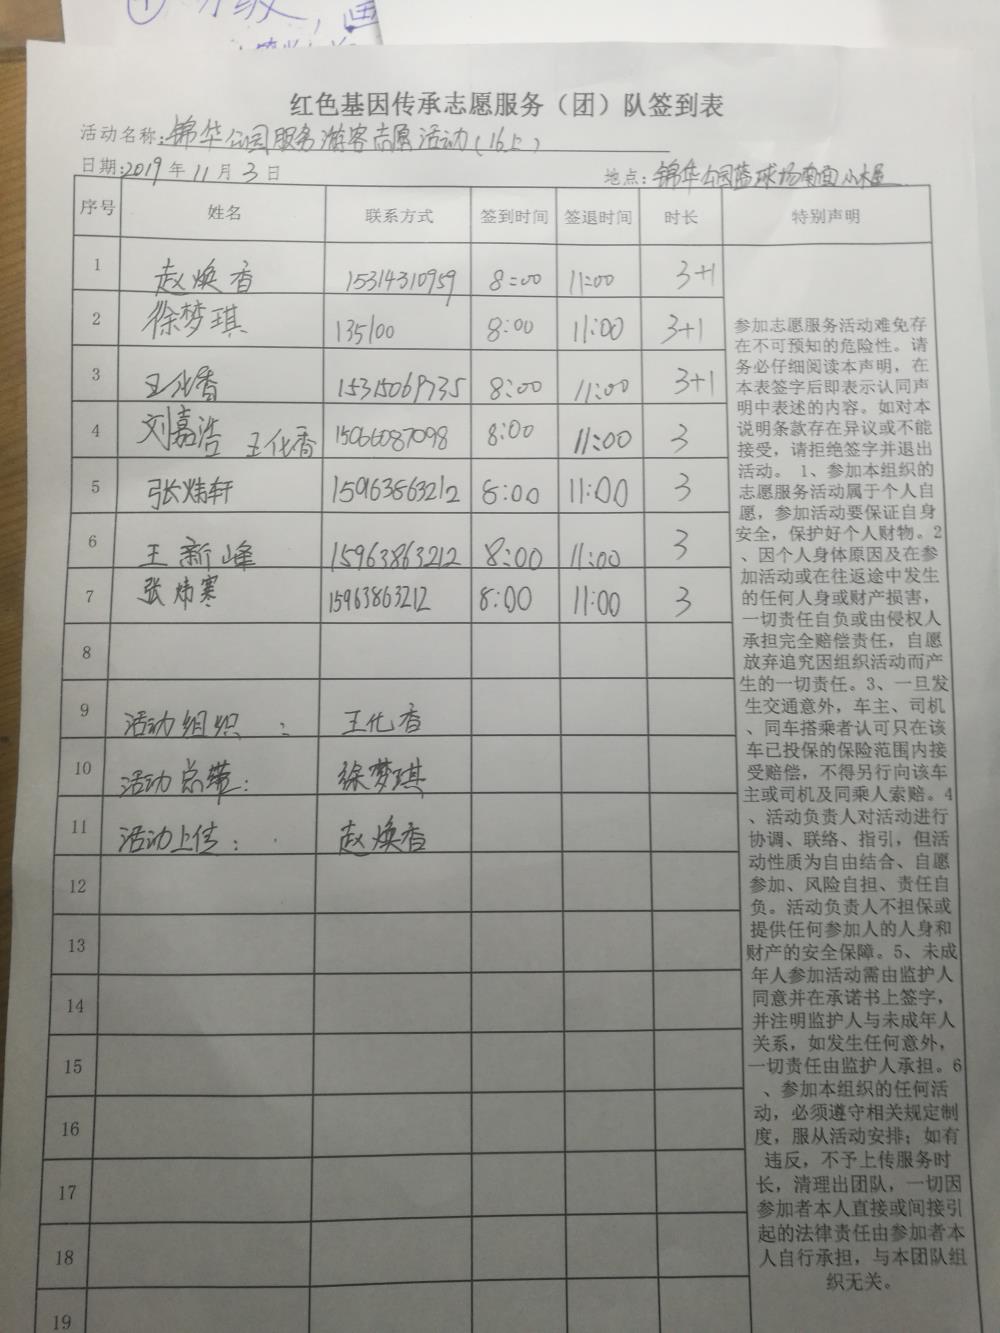 红色基因传承志愿服务（团）队签到表
活动名称:锦华公园服务游客志愿活动(16上)
日期:2019年11月3日 地点:锦华公园篮球场南面小木屋
序号 姓名 联系方式 签到时间 签退时间 时长 特别声明
1 赵焕香 15314310959 8:00 11:00 3+1
2 徐梦琪 135100 8:00 11:00 3+1
3 王化香 15315069735 8:00 11:00 3+1
4 刘嘉浩 王化香 15066087098 8:00 11:00 3
5 张炜轩 15963863212 8:00 11:00 3
6 王新峰 15963863212 8:00 11:00 3
7 张炜寒 15963863212 8:00 11:00 3
8
9 活动组织： 王化香
10 活动总带： 徐梦琪
11 活动上传： 赵焕香
12
13
14
15
16
17
18
19
参加志愿服务活动难免存
在不可预知的危险性。请
务必仔细阅读本声明，在
本表签字后即表示认同声
明中表述的内容。如对本
说明条款存在异议或不能
接受，请拒绝签字并退出
活动。 1、参加本组织的
志愿服务活动属于个人自
愿，参加活动要保证自身
安全，保护好个人财物。2
、因个人身体原因及在参
加活动或在往返途中发生
的任何人身或财产损害，
一切责任自负或由侵权人
承担完全赔偿责任，自愿
放弃追究因组织活动而产
生的一切责任。3、一旦发
生交通意外，车主、司机
、同车搭乘者认可只在该
车已投保的保险范围内接
受赔偿，不得另行向该车
主或司机及同乘人索赔。4
、活动负责人对活动进行
协调、联络、指引，但活
动性质为自由结合、自愿
参加、风险自担、责任自
负。活动负责人不担保或
提供任何参加人的人身和
财产的安全保障。5、未成
年人参加活动需由监护人
同意并在承诺书上签字，
并注明监护人与未成年人
关系，如发生任何意外，
一切责任由监护人承担。6
、参加本组织的任何活
动，必须遵守相关规定制
度，服从活动安排；如有
违反，不予上传服务时
长，清理出团队，一切因
参加者本人直接或间接引
起的法律责任由参加者本
人自行承担，与本团队组
织无关。